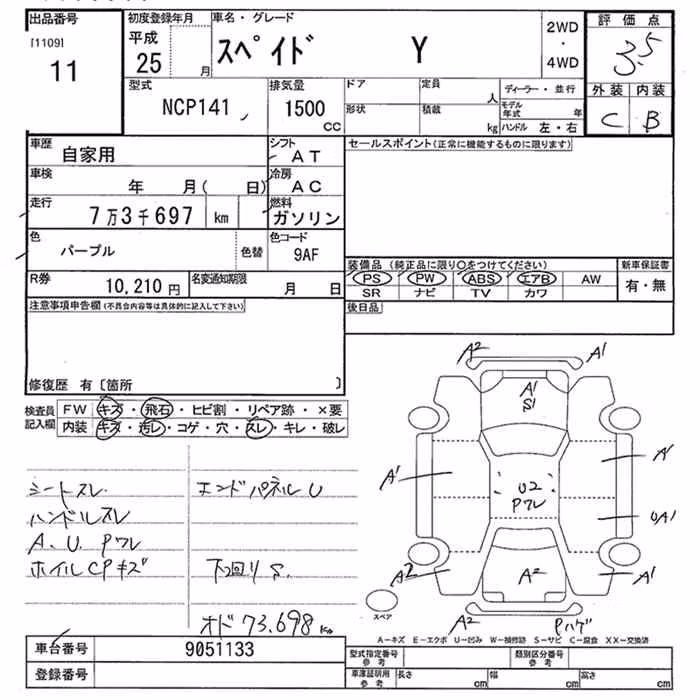 出品番号
[1109]
11
初度登録年月
平成
25 月
車名・グレード
スペイド Y
2WD
・
4WD
評価点
3.5
外装 内装
C B
型式
NCP141
排気量
1500
CC
ドア
定員
人
形状
積載
kg
ディーラー・並行
モデル年式 年
ハンドル 左・右
車歴
自家用
シフト
AT
車検
年 月( 日)
冷房
AC
走行
7万3千697 km
燃料
ガソリン
色
パープル
色替
色コード
9AF
R券
10,210 円
名変通知期限
月 日
セールスポイント(正常に機能するものに限ります)
装備品 (純正品に限り○をつけてください)
PS PW ABS エアB AW
SR ナビ TV カワ
新車保証書
有・無
後日品
注意事項申告欄(不具合内容等は具体的に記入して下さい)
修復歴 有〔箇所 〕
検査員
記入欄
FW キズ・飛石・ヒビ割・リペア跡・×要
内装 キズ・汚レ・コゲ・穴・スレ・キレ・破レ
シートスレ
ハンドルスレ
A、U、Pワレ
ホイルCPキズ
エンドパネルU
下回りS
オド 73,698 km
A2
A1
A1
S1
A1
A1
U2
Pワレ
UA1
A2
A2
A1
スペア
A2
Pハゲ
A−キズ E−エクボ U−凹み W−補修跡 S−サビ C−腐食 XX−交換済
車台番号 9051133
登録番号
型式指定番号
参考
類別区分番号
参考
車庫証明用
参考
長さ cm
幅 cm
高さ cm